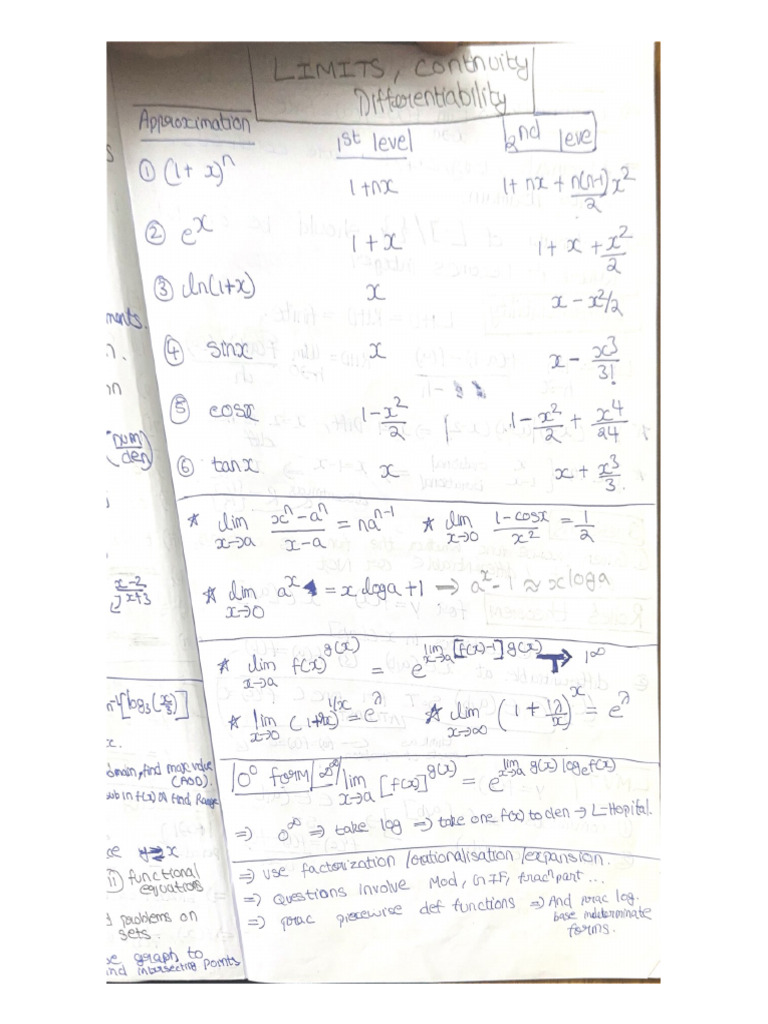 LIMITS, Continuity
Differentiability
Approximation 1st level 2nd level
① (1+x)^n 1+nx 1+nx+n(n-1)/2 x^2
② e^x 1+x 1+x+x^2/2
③ ln(1+x) x x-x^2/2
④ sinx x x-x^3/3!
⑤ cosx 1-x^2/2 1-x^2/2+x^4/24
⑥ tanx x x+x^3/3
* lim x→a (x^n-a^n)/(x-a) = na^(n-1) * lim x→0 (1-cosx)/x^2 = 1/2
* lim x→0 a^x = x loga+1 → a^x-1 ≈ xloga
* lim x→a f(x)^g(x) = e^(lim x→a [f(x)-1]g(x)) → 1^∞
* lim x→0 (1+λx)^(1/x) = e^λ * lim x→∞ (1+λ/x)^x = e^λ
0^0 form ∞^0 lim x→a [f(x)]^g(x) = e^(lim x→a g(x) log_e f(x))
⇒ 0^∞ ⇒ take log ⇒ take one f(x) to den → L-Hopital.
⇒ use factorization /rationalisation /expansion.
⇒ Questions involve Mod, GIF, fracn part...
⇒ prac piecewise def functions ⇒ And prac log.
base indeterminate
forms.
ments.
(num/den)
x-2
x+3
[log3(x/3)]
x.
domain, find max value
(AOD).
sub in f(x) & find Range
x
ii) functional
equations
problems on
sets.
graph to
find intersecting points